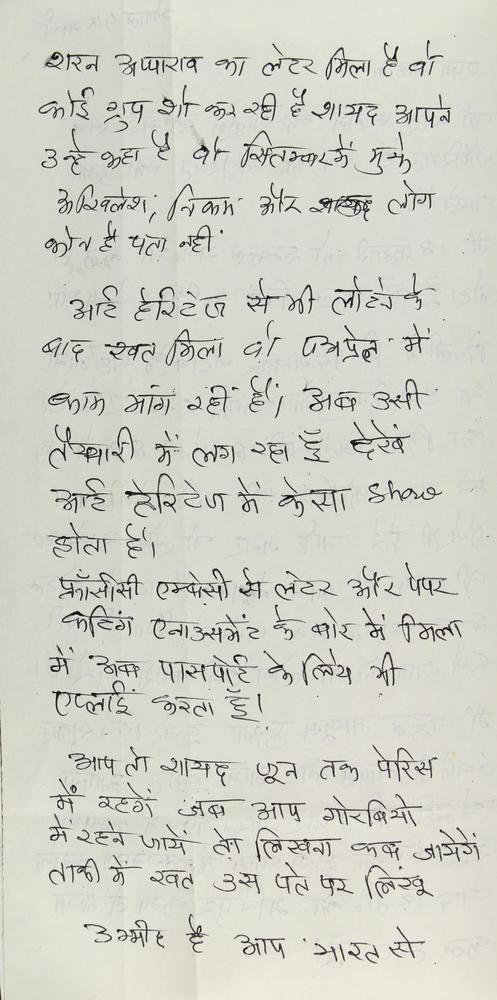 शरन अप्पाराव का लेटर मिला है वो
कोई ग्रुप शो कर रही है शायद आपने
उन्हे कहा है वो सितम्बर में मुझे
अखिलेश, निकम और लोग
कोन है पता नहीं
आर्ट हेरिटेज से भी लोटने के
बाद खत मिला वो अप्रेल में
काम मांग रहीं हैं। अब उसी
तैय्यारी में लग रहा हूँ देखें
आर्ट हेरिटेज में केसा show
होता है।
फ्राँसीसी एम्बेसी से लेटर और पेपर
कटिंग एनाउसमेंट के बारे में मिला
में अब पासपोर्ट के लिये भी
एप्लाई करता हूँ।
आप तो शायद जून तक पेरिस
में रहगें जब आप गोरबियो
मे रहने जायें तो लिखना कब जायेगें
ताकी में खत उस पते पर लिखू
उम्मीद है आप भारत से